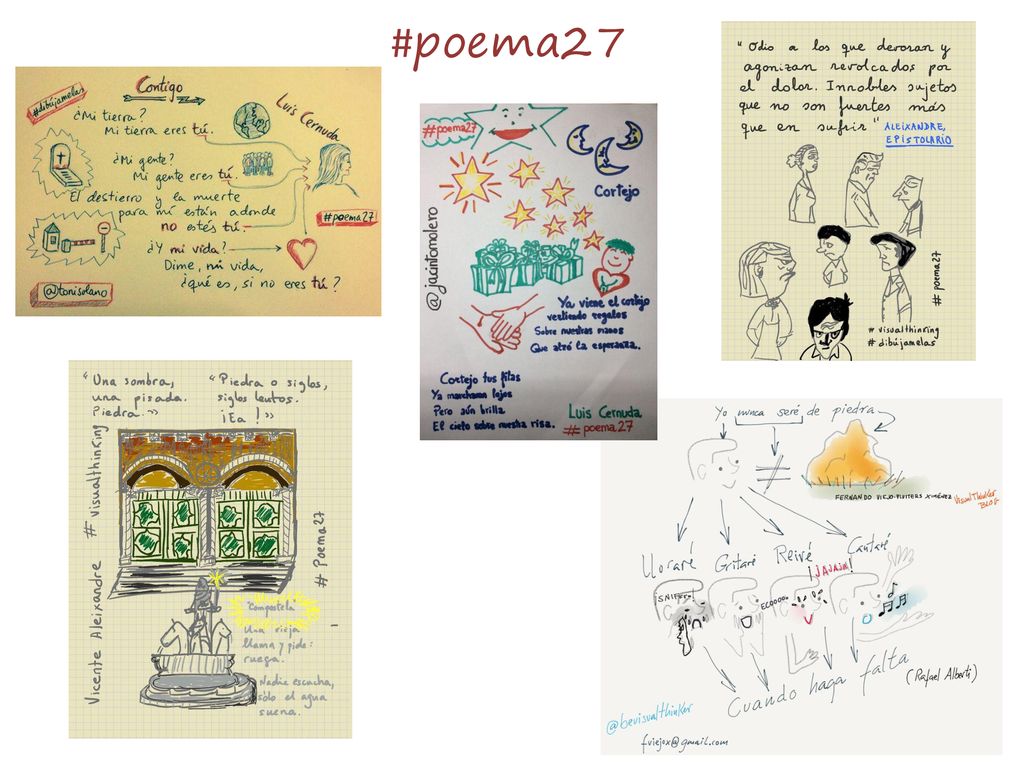 #poema27
#dibújamelas
Contigo
Luis Cernuda
¿Mi tierra?
Mi tierra eres tú.
¿Mi gente?
Mi gente eres tú.
El destierro y la muerte
para mí están adonde
no estés tú.
#poema27
¿Y mi vida?
Dime, mi vida,
¿qué es, si no eres tú?
@tonisolano
#poema27
Cortejo
@jacintomolero
Ya viene el cortejo
vertiendo regalos
Sobre nuestras manos
Que atró la esperanza.
Cortejo tus filas
Ya marcharon lejos
Pero aún brilla
El cielo sobre nuestra risa.
Luis Cernuda
#poema27
"Odio a los que devoran y
agonizan revolcados por
el dolor. Innobles sujetos
que no son fuertes más
que en sufrir"
ALEIXANDRE,
EPISTOLARIO
# poema27
# visualthinking
# dibújamelas
"Una sombra,
una pisada.
Piedra.">
"Piedra o siglos,
siglos lentos.
¡Ea!"
# visualthinking
Vicente Aleixandre
# Poema27
Compostela
Una vieja
llama y pide:
ruega.
Nadie escucha,
sólo el agua
suena.
Yo nunca seré de piedra
FERNANDO VIEJO-FLUITERS XIMÉNEZ
VisualThinker
BLOG
Lloraré
Gritaré
Reiré
Cantaré
¡JAJAJA!
SNIFFF!
ECOOOOO
Cuando haga falta
(Rafael Alberti)
@bevisualthinker
fviejox@gmail.com